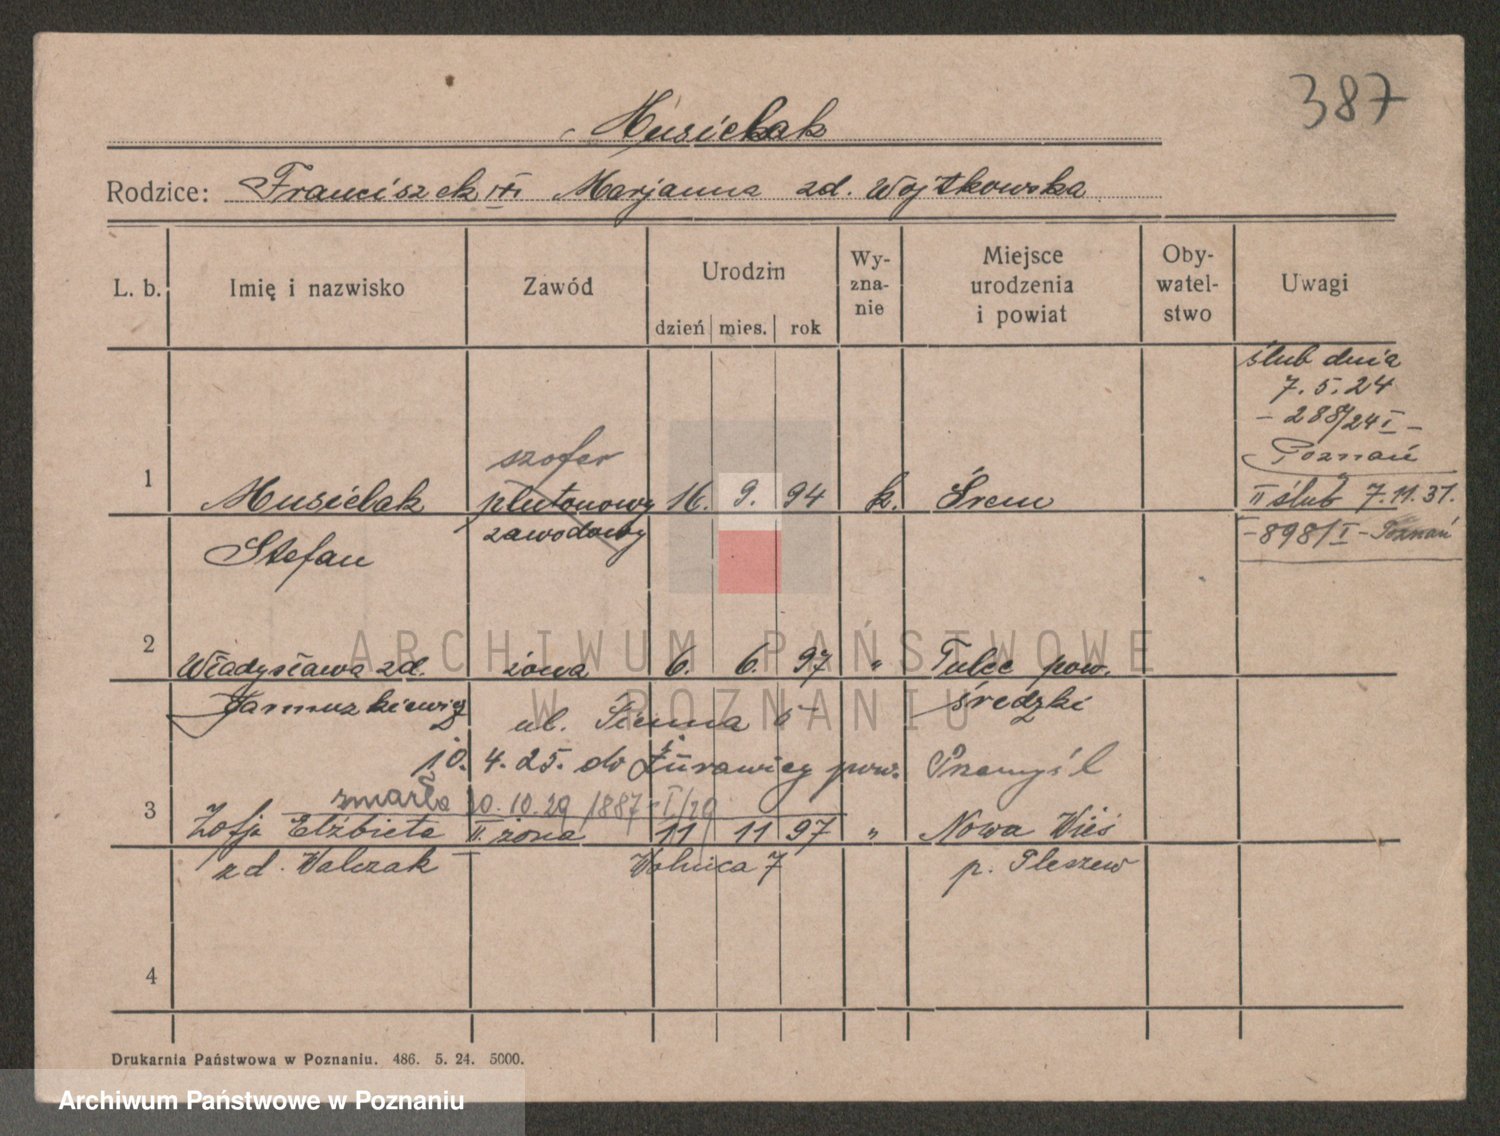 387
Musielak
Rodzice: Franciszek i Marjanna zd. Wojtkowska
L. b. Imię i nazwisko Zawód Urodzin Wy-zna-nie Miejsce urodzenia i powiat Oby-watel-stwo Uwagi
dzień mies. rok
ślub dnia
7. 5. 24
- 288/24 I -
Poznań
szofer
1 Musielak plutonowy 16. 9. 94 k. Śrem II ślub 7.11.31.
Stefan zawodowy -898/I- Poznań
2 Władysława zd. żona 6. 6. 97 " Tulce pow.
Jarmuszkiewicz ul. Sienna 5 średzki
10. 4. 25. do Żurawicy pow. Przemyśl
zmarła 20.10.29 1887-I/29
3 Zofja Elżbieta II. żona 11 11 97 " Nowa Wieś
zd. Walczak Wolnica 7 p. Pleszew
4
Drukarnia Państwowa w Poznaniu. 486. 5. 24. 5000.
ARCHIWUM PAŃSTWOWE
W POZNANIU
Archiwum Państwowe w Poznaniu